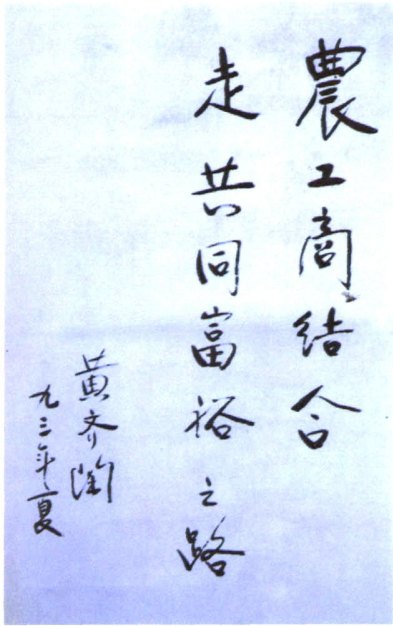 農工商结合
走共同富裕之路
黄齐陶
九三年夏